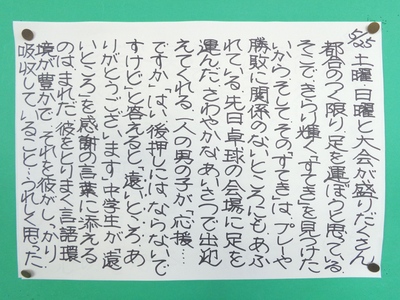 5/25
土曜日曜と大会が盛りだくさん
都合のつく限り、足を運ぼうと思っている。
そこできらり輝く「すてき」を見つけた
いから。そしてその「すてき」は、プレーや
勝敗に関係のないところにもあふ
れている。先日卓球の会場に足を
運んだ。さわやかなあいさつで出迎
えてくれる。一人の男の子が「応援…
ですか」はい、後押しにはならないで
すけどと答えると、「遠いところ、あ
りがとうございます。中学生が「遠
いところ」を感謝の言葉に添える
のはまれだ。彼をとりまく言語環
境が豊かで、それを彼がしっかり
吸収していること…うれしく思った。